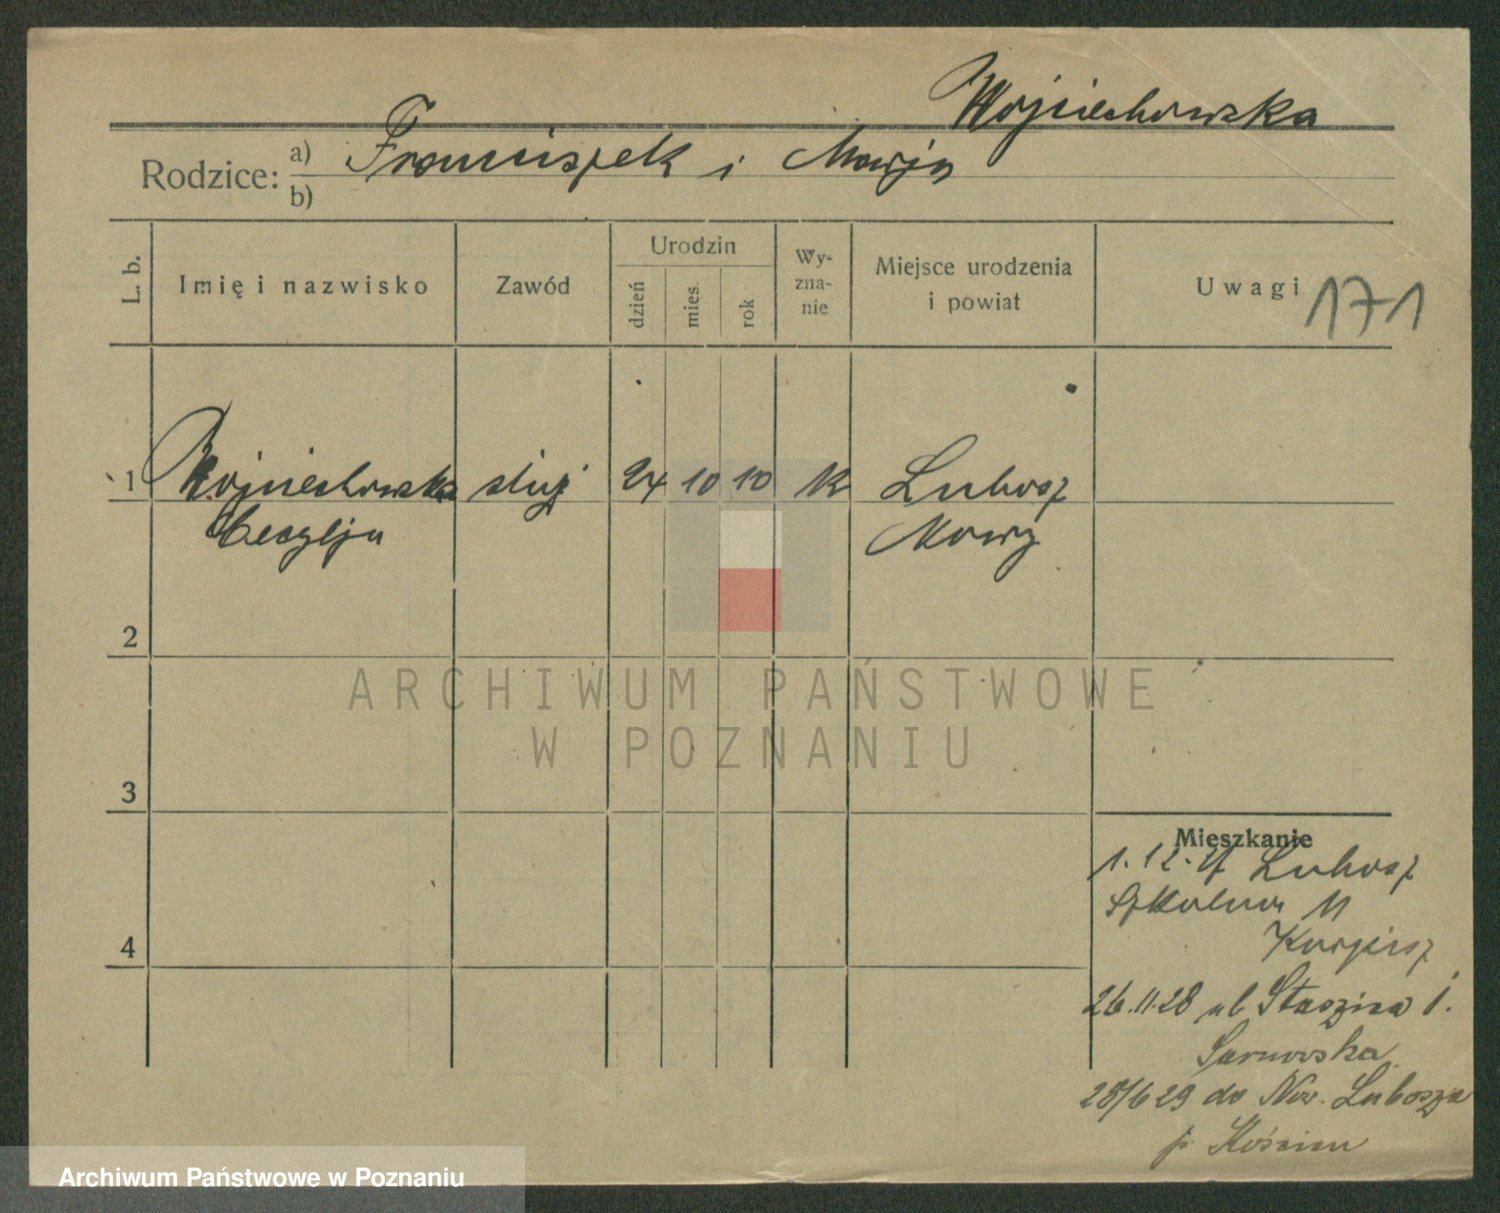 Wojciechowska
Rodzice: a) Franciszek i Marja
b)
L. b. Imię i nazwisko Zawód Urodzin dzień mies. rok Wy-zna-nie Miejsce urodzenia i powiat Uwagi 171
1 Wojciechowska służ 24 10 10 k Lubosz
Cecylja Nowy
2
ARCHIWUM PAŃSTWOWE
W POZNANIU
3
Mieszkanie
1. 12. Lubosz
Szkolna 11
4
26.11.28 ul Staszica 1.
Sarnowska
28/6 29 do Now. Lubosza
p. Kościan
Archiwum Państwowe w Poznaniu